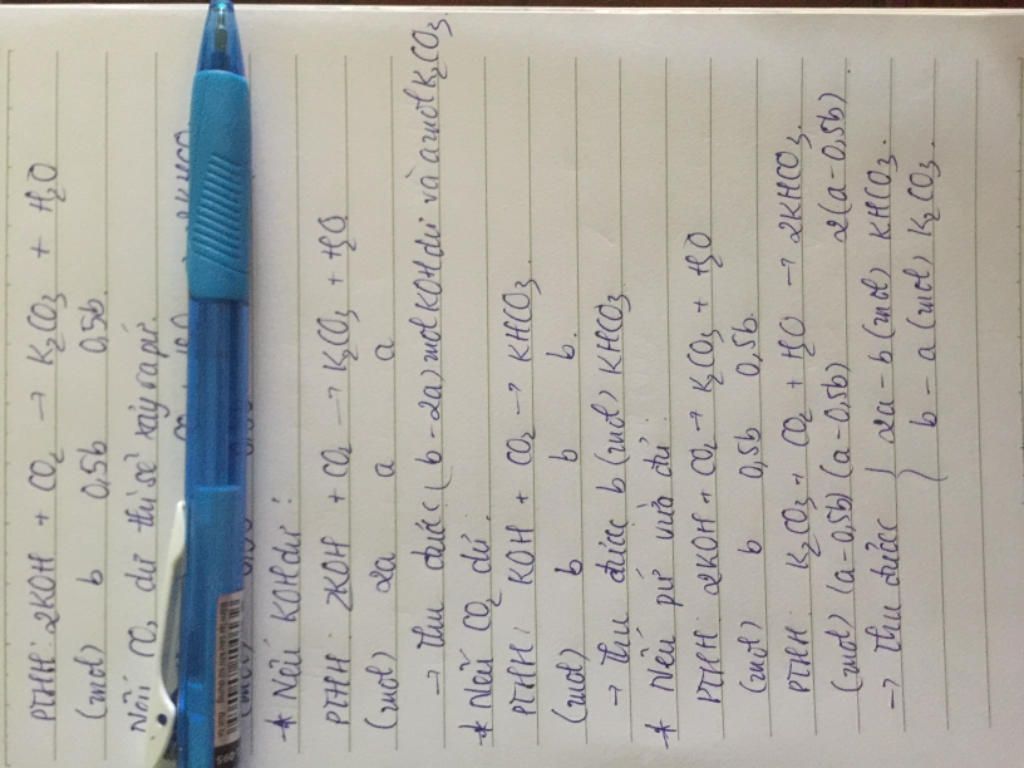 PTHH: 2KOH + CO₂ → K₂CO₃ + H₂O
(mol) b 0,5b 0,5b
Nếu CO₂ dư thì sẽ xảy ra pứ.
* Nếu KOH dư:
PTHH: 2KOH + CO₂ → K₂CO₃ + H₂O
(mol) 2a a a
→ Thu được (b - 2a) mol KOH dư và a mol K₂CO₃
* Nếu CO₂ dư.
PTHH: KOH + CO₂ → KHCO₃
(mol) b b b.
→ Thu được b (mol) KHCO₃
* Nếu pứ vừa đủ:
PTHH: 2KOH + CO₂ → K₂CO₃ + H₂O
(mol) b 0,5b 0,5b.
PTHH: K₂CO₃ + CO₂ + H₂O → 2KHCO₃.
(mol) (a - 0,5b) (a - 0,5b) 2(a - 0,5b)
→ Thu được { 2a - b (mol) KHCO₃.
b - a (mol) K₂CO₃.